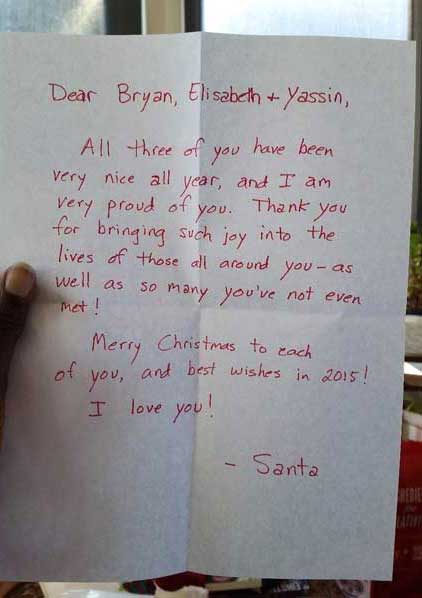 Dear Bryan, Elisabeth + Yassin,
All three of you have been
very nice all year, and I am
very proud of you. Thank you
for bringing such joy into the
lives of those all around you – as
well as so many you've not even
met!
Merry Christmas to each
of you, and best wishes in 2015!
I love you!
- Santa